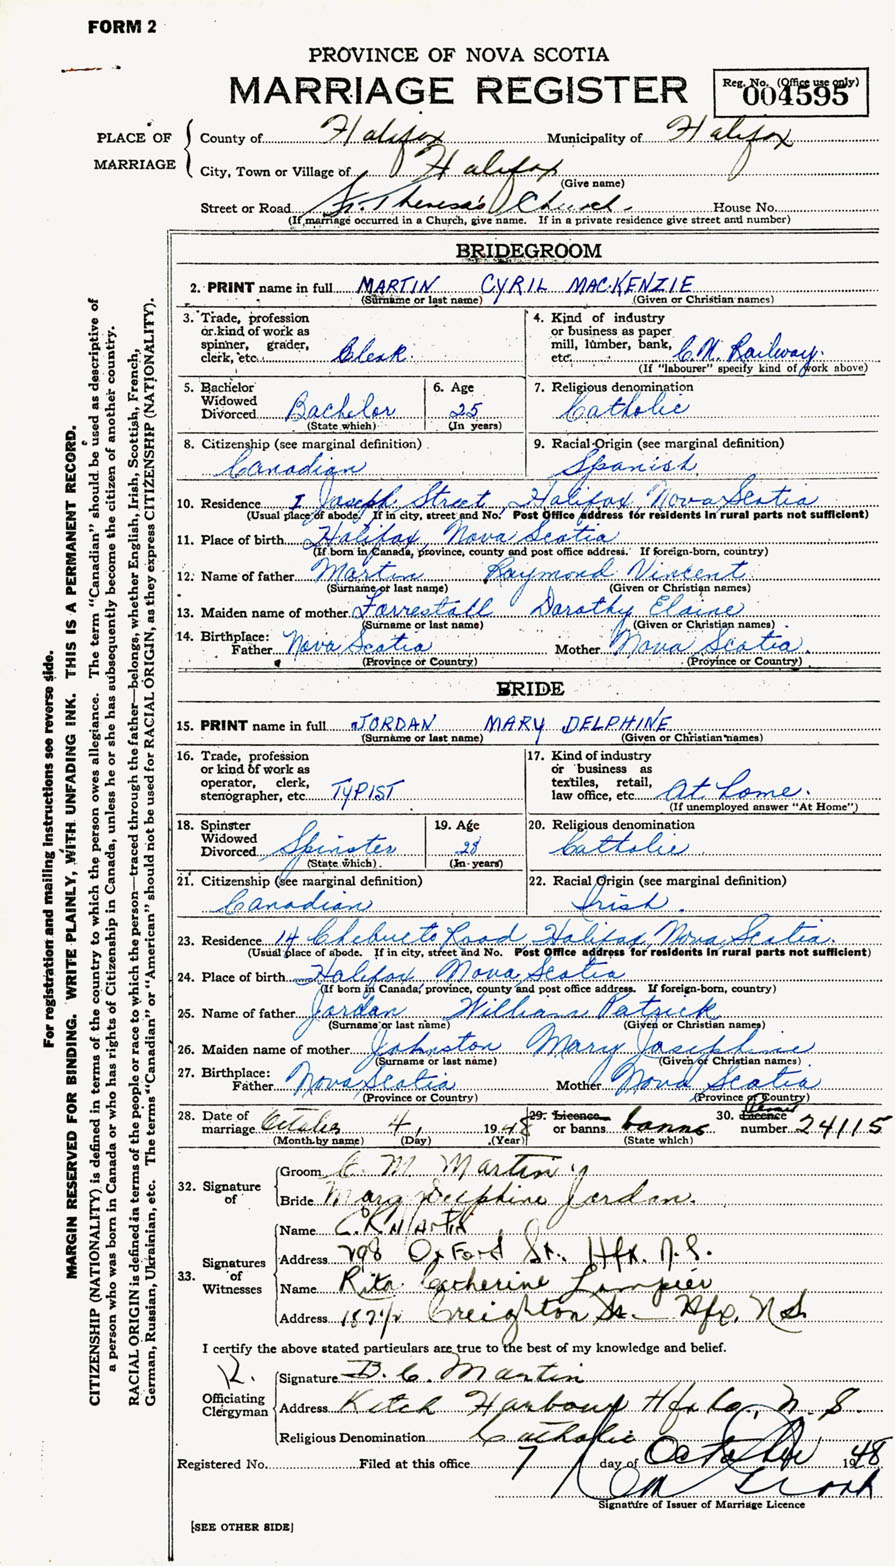 FORM 2
PROVINCE OF NOVA SCOTIA
MARRIAGE REGISTER
Reg. No. (Office use only)
004595
PLACE OF MARRIAGE
County of Halifax Municipality of Halifax
City, Town or Village of Halifax
(Give name)
Street or Road St. Theresa's Church. House No.
(If marriage occurred in a Church, give name. If in a private residence give street and number)
BRIDEGROOM
2. PRINT name in full MARTIN CYRIL MACKENZIE
(Surname or last name) (Given or Christian names)
3. Trade, profession or kind of work as spinner, grader, clerk, etc. Clerk.
4. Kind of industry or business as paper mill, lumber, bank, etc. C.N. Railway.
(If "labourer" specify kind of work above)
5. Bachelor Widowed Divorced Bachelor
(State which)
6. Age 25
(In years)
7. Religious denomination
Catholic
8. Citizenship (see marginal definition)
Canadian
9. Racial Origin (see marginal definition)
Spanish
10. Residence 1 Joseph Street, Halifax, Nova Scotia
(Usual place of abode. If in city, street and No. Post Office address for residents in rural parts not sufficient)
11. Place of birth Halifax, Nova Scotia
(If born in Canada, province, county and post office address. If foreign-born, country)
12. Name of father Martin Raymond Vincent
(Surname or last name) (Given or Christian names)
13. Maiden name of mother Forrestall Dorothy Elaine
(Surname or last name) (Given or Christian names)
14. Birthplace:
Father Nova Scotia Mother Nova Scotia
(Province or Country) (Province or Country)
BRIDE
15. PRINT name in full JORDAN MARY DELPHINE
(Surname or last name) (Given or Christian names)
16. Trade, profession or kind of work as operator, clerk, stenographer, etc. TYPIST
17. Kind of industry or business as textiles, retail, law office, etc. At home.
(If unemployed answer "At Home")
18. Spinster Widowed Divorced Spinster
(State which)
19. Age 28
(In years)
20. Religious denomination
Catholic
21. Citizenship (see marginal definition)
Canadian
22. Racial Origin (see marginal definition)
Irish.
23. Residence 14 Chebucto Road Halifax, Nova Scotia.
(Usual place of abode. If in city, street and No. Post Office address for residents in rural parts not sufficient)
24. Place of birth Halifax Nova Scotia
(If born in Canada, province, county and post office address. If foreign-born, country)
25. Name of father Jordan William Patrick
(Surname or last name) (Given or Christian names)
26. Maiden name of mother Johnston Mary Josephine
(Surname or last name) (Given or Christian names)
27. Birthplace:
Father Nova Scotia Mother Nova Scotia
(Province or Country) (Province or Country)
28. Date of marriage October 4, 1948
(Month by name) (Day) (Year)
29. Licence or banns banns
(State which)
30. Licence number 24115
32. Signature of
Groom C. M. Martin
Bride Mary Delphine Jordan.
33. Signatures of Witnesses
Name C.R. Martin
Address 298 Oxford St., Hfx. N.S.
Name Rita Catherine Lampier
Address 187 1/2 Creighton St. Hfx. N.S.
I certify the above stated particulars are true to the best of my knowledge and belief.
Officiating Clergyman
Signature B. C. Martin
Address Ketch Harbour Hfx Co., N. S.
Religious Denomination Catholic
Registered No. Filed at this office 7 day of October 1948
Signature of Issuer of Marriage Licence
[SEE OTHER SIDE]
For registration and mailing instructions see reverse side.
MARGIN RESERVED FOR BINDING. WRITE PLAINLY, WITH UNFADING INK. THIS IS A PERMANENT RECORD.
CITIZENSHIP (NATIONALITY) is defined in terms of the country to which the person owes allegiance. The term "Canadian" should be used as descriptive of
a person who was born in Canada or who has rights of Citizenship in Canada, unless he or she has subsequently become the citizen of another country.
RACIAL ORIGIN is defined in terms of the people or race to which the person—traced through the father—belongs, whether English, Irish, Scottish, French,
German, Russian, Ukrainian, etc. The terms "Canadian" or "American" should not be used for RACIAL ORIGIN, as they express CITIZENSHIP (NATIONALITY).